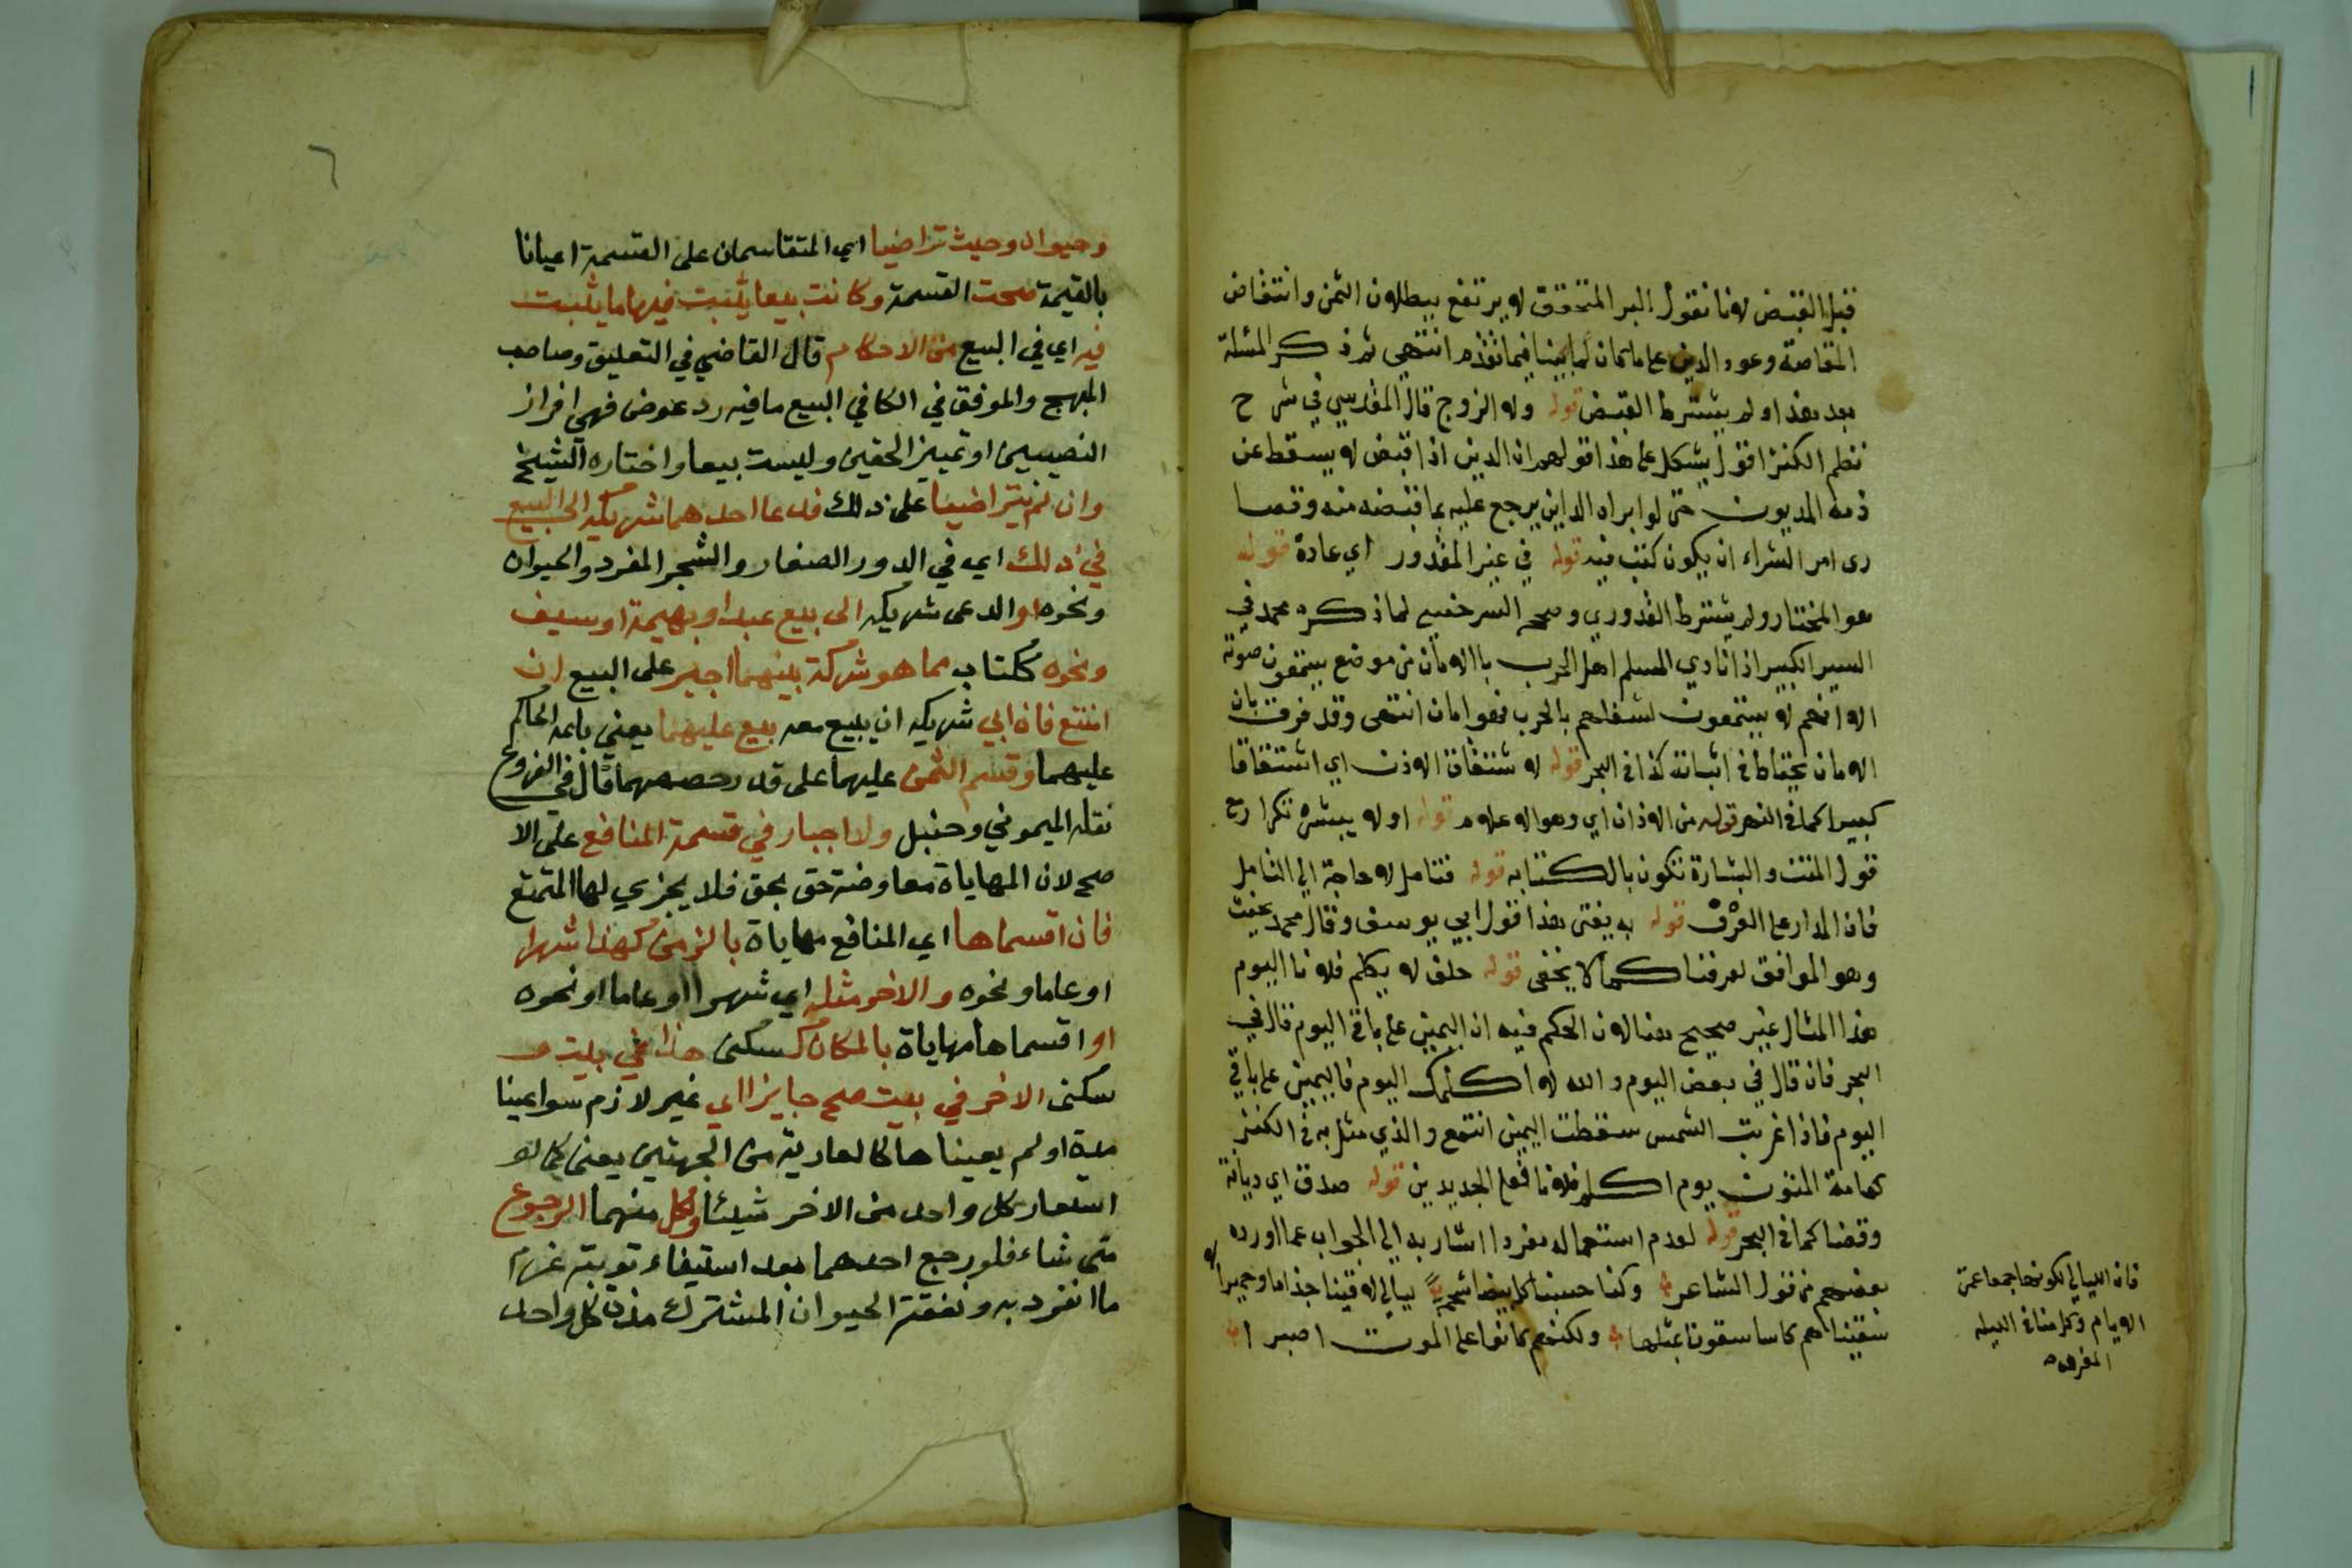 قبل القبض لانا نقول البر المتحقق لا يرتفع ببطلان الثمن وانتقاض
المقاصة وعود الدين على ما كان لما بينا فيما تقدم انتهى ثم ذكر المسئلة
بعد هذا ولم يشترط القبض قوله ولا الزوج قال المقدسي في شرح
نظم الكنز اقول يشكل على هذا قولهم ان الدين اذا قبض لا يسقط عن
ذمة المديون حتى لو ابراه الداين يرجع عليه بما قبضه منه وقصا
رى امر الشراء ان يكون كتب فيه قوله في غير المقدور اي عادة قوله
هو المختار ولم يشترط القدوري وصححه السرخسي لما ذكره محمد في
السير الكبير اذا نادي المسلم اهل الحرب بالامان من موضع يسمعون صوته
الا انهم لا يسمعون لشغلهم بالحرب فهو امان انتهى وقد فرق بان
الامان يحتاط في اثباته كذا في البحر قوله لاشتقاق الاذن اي اشتقاقا
كبيرا كما في النهر قوله من الاذان اي وهو الاعلام قوله اولا يبشره تكرار مع
قول المتن والبشارة تكون بالكتابه قوله فتامل لا حاجة الي التامل
فان المدار على العرف قوله به يفتى هذا قول ابي يوسف وقال محمد يحنث
وهو الموافق لعرفنا كما لا يخفى قوله حلف لا يكلم فلانا اليوم
هذا المثال غير صحيح هنا لان الحكم فيه ان اليمين على باقي اليوم قال في
البحر فان قال في بعض اليوم والله لا اكلمك اليوم فاليمين على باقي
اليوم فاذا غربت الشمس سقطت اليمين انتهى والذي مثل به في الكنز
كعامة المتون يوم اكلم فلانا فعلى الجديدين قوله صدق اي ديانة
وقضا كما في البحر قوله لعدم استعماله مفردا اشار به الي الجواب عما اورده
بعضهم من قول الشاعر وكنا حسبنا كل بيضا شحمة ليالي لاقينا جذاما وحميرا
سقيناهم كاسا سقونا بمثلها ولكنهم كانوا على الموت اصبرا
فان الليالي لكونها جمعا عمت
الايام وكلامنا في الليله
المفرده
٦
وحيوان وحيث تراضيا اي المتقاسمان على القسمة اعيانا
بالقيمة صحت القسمة وكانت بيعا يثبت فيها ما يثبت
فيه اي في البيع من الاحكام قال القاضي في التعليق وصاحب
المبهج والموفق في الكافي البيع ما فيه رد عوض فهي افراز
النصيبين او تمييز الحقين وليست بيعا واختاره الشيخ
وان لم يتراضيا على ذلك فدعا احدهما شريكه الى البيع
في ذلك اي في الدور الصغار والشجر المفرد والحيوان
ونحوه او الدعى شريكه الى بيع عبد او بهيمة او سيف
ونحوه ككتاب مما هو شركة بينهما اجبر على البيع ان
امتنع فان ابي شريكه ان يبيع معه بيع عليهما يعني باعه الحاكم
عليهما وقسم الثمن عليهما على قدر حصصهما قال في الفروع
نقله الميموني وحنبل ولا اجبار في قسمة المنافع على الا
صح لان المهاياة معاوضة حق بحق فلا يجزي لها الممتنع
فان اقسماها اي المنافع مهاياة بالزمن كهذا شهرا
او عاما ونحوه والاخر مثله اي شهرا او عاما او نحوه
او اقسماها مهاياة بالمكان كسكنى هذا في بيت و
سكنى الاخر في بيت صح جايزا اي غير لازم سوا عينا
مدة او لم يعيناها كالعارية من الجهتين يعني كما لو
استعار كل واحد من الاخر شيئا ولكل منهما الرجوع
متى شاء فلو رجع احدهما بعد استيفاء نوبته غرم
ما انفرد به ونفقة الحيوان المشترك مدة كل واحد